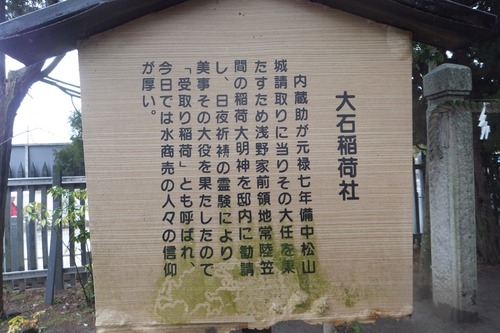 大石稲荷社
内蔵助が元禄七年備中松山
城請取りに当りその大任を果
たすため浅野家前領地常陸笠
間の稲荷大明神を邸内に勧請
し、日夜祈祷の霊験により
美事その大役を果たしたので
「受取り稲荷」とも呼ばれ、
今日では水商売の人々の信仰
が厚い。